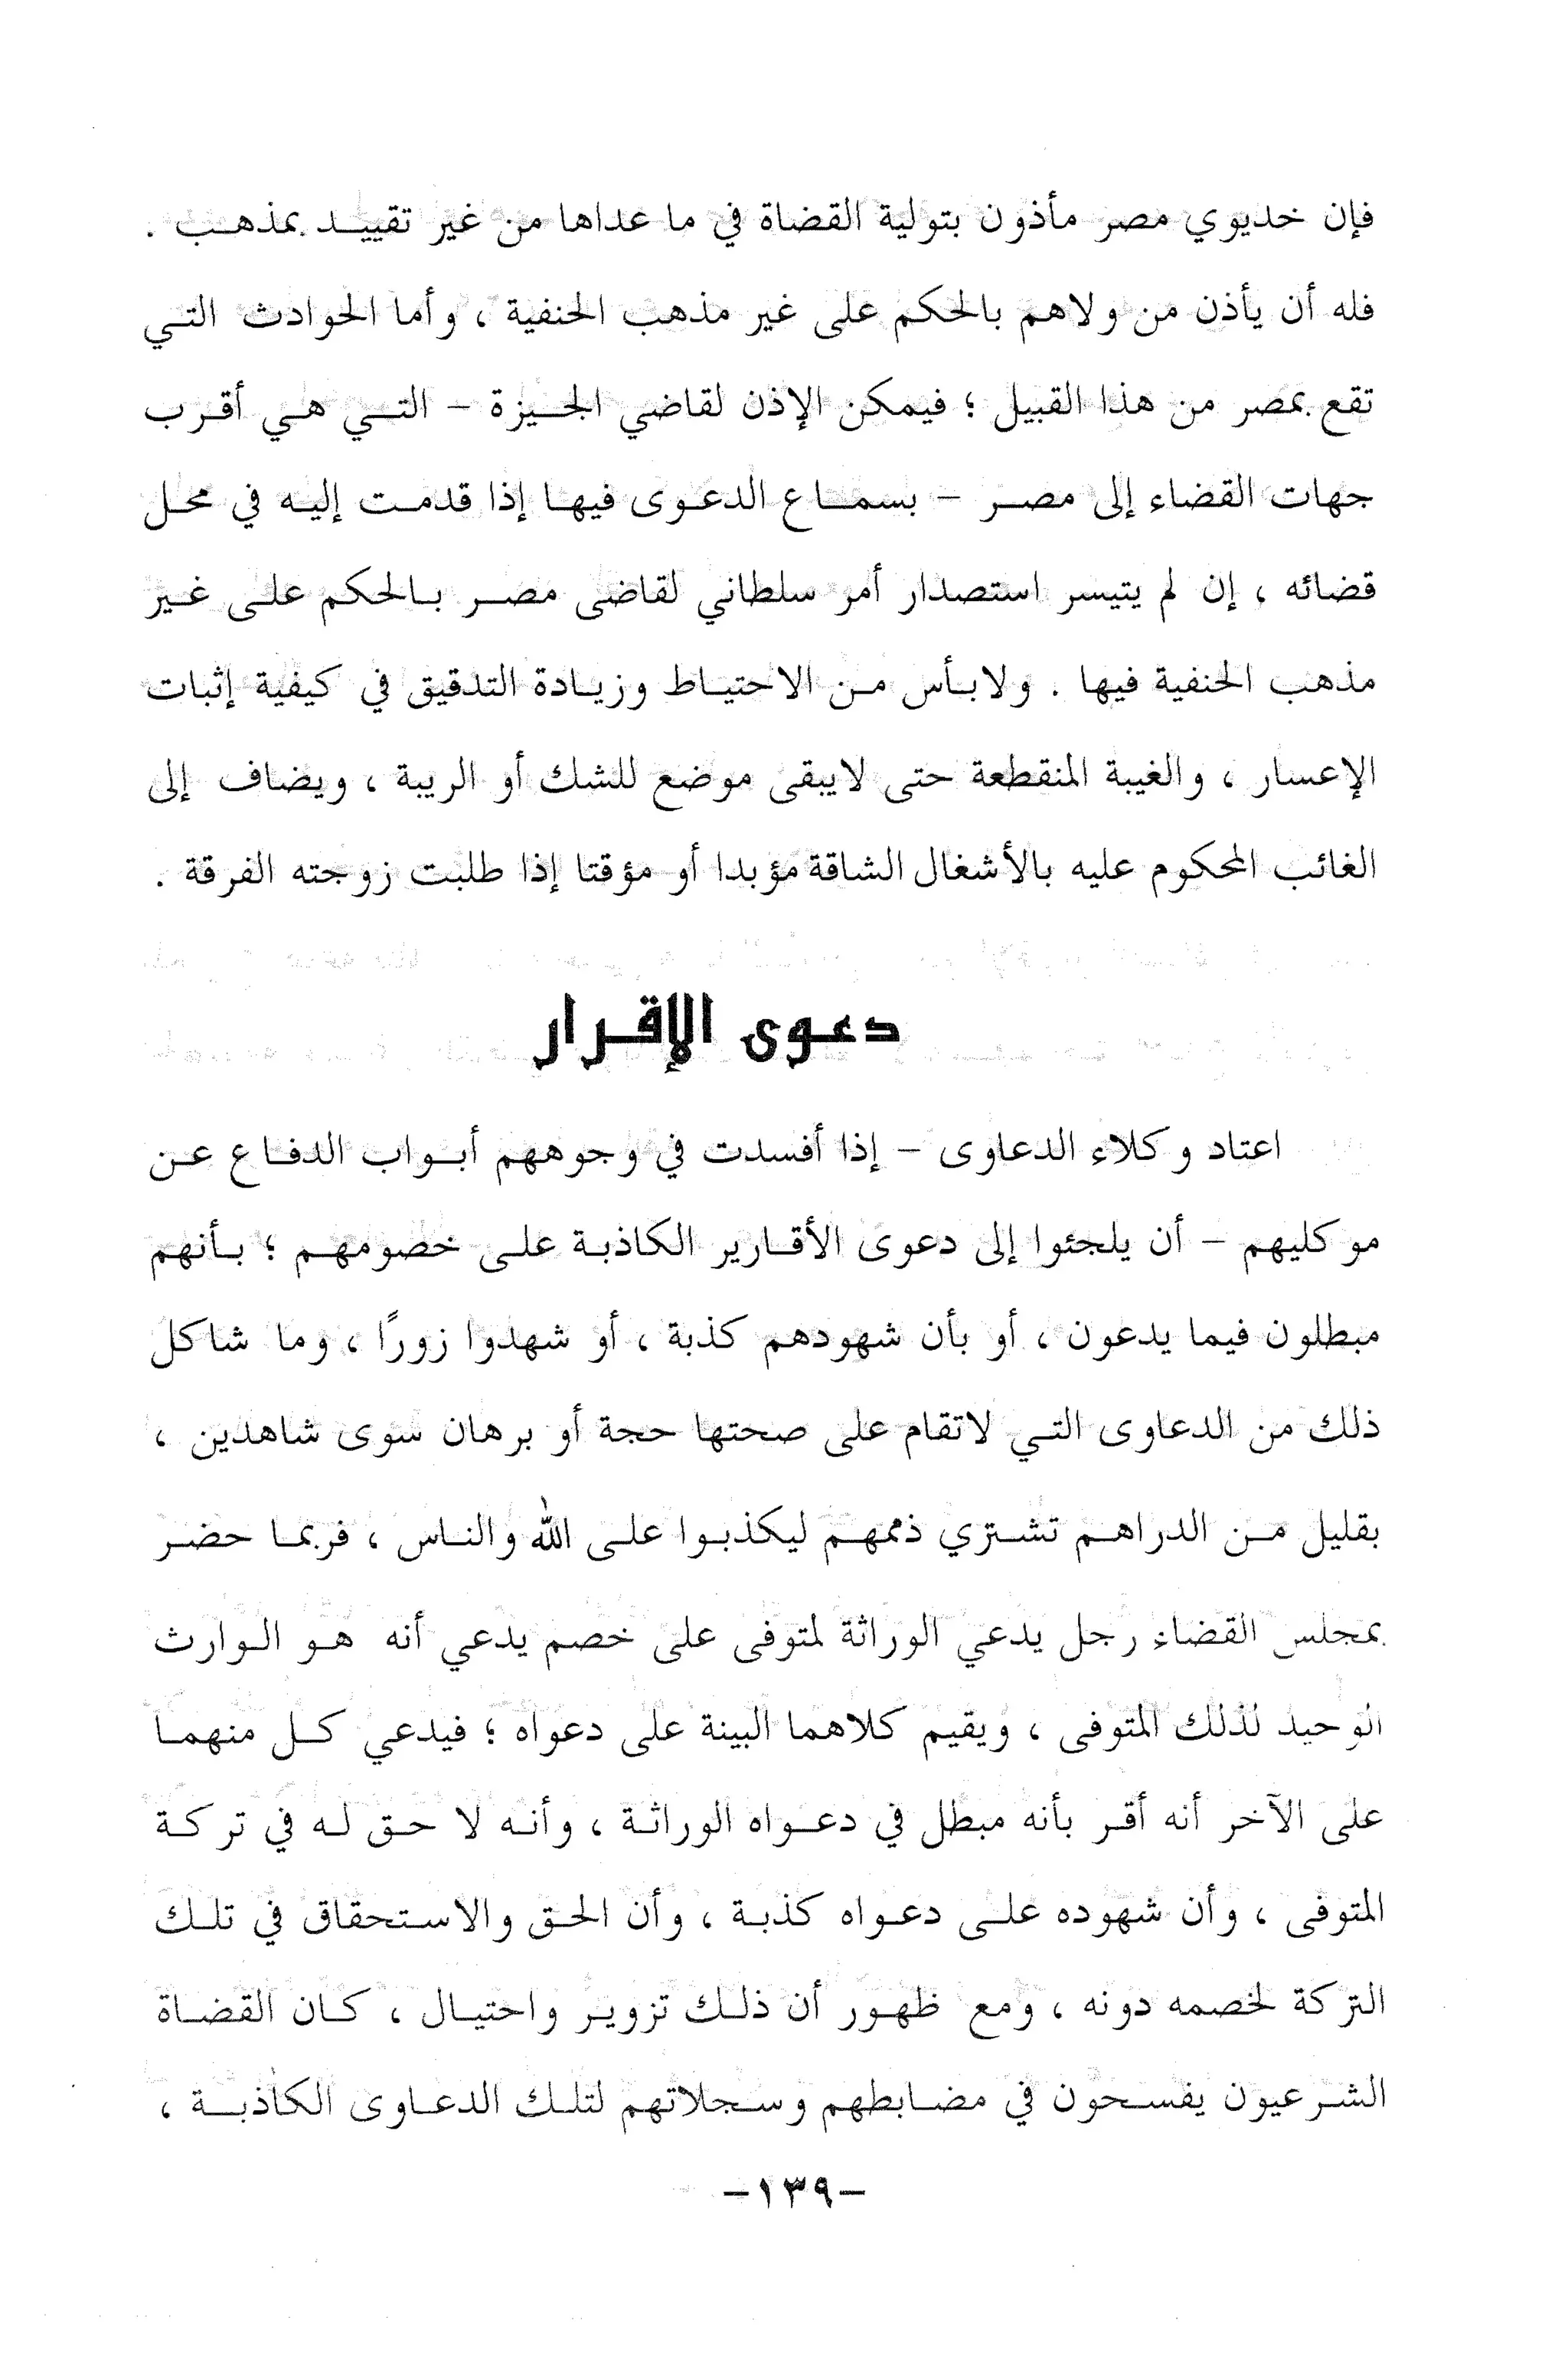 فإن خديوي مصر مأذون بتولية القضاة في ما عداها من غير تقييد بمذهب .
فله أن يأذن من ولاهم بالحكم على غير مذهب الحنفية ، وأما الحوادث التي
تقع بمصر من هذا القبيل ؛ فيمكن الإذن لقاضي الجيزة – التي هي أقرب
جهات القضاء إلى مصر – بسماع الدعوى فيها إذا قدمت إليه في محل
قضائه ، إن لم يتيسر استصدار أمر سلطاني لقاضي مصر بالحكم على غير
مذهب الحنفية فيها . ولابأس من الاحتياط وزيادة التدقيق في كيفية إثبات
الإعسار ، والغيبة المنقطعة حتى لايبقى موضع للشك أو الريبة ، ويضاف إلى
الغائب المحكوم عليه بالأشغال الشاقة مؤبدا أو مؤقتا إذا طلبت زوجته الفرقة .
دعوى الإقرار
اعتاد وكلاء الدعاوى – إذا أفسدت في وجوههم أبواب الدفاع عن
موكليهم – أن يلجئوا إلى دعوى الأقارير الكاذبة على خصومهم ؛ بأنهم
مبطلون فيما يدعون ، أو بأن شهودهم كذبة ، أو شهدوا زورًا ، وما شاكل
ذلك من الدعاوى التي لاتقام على صحتها حجة أو برهان سوى شاهدين ،
بقليل من الدراهم تشتري ذممهم ليكذبوا على الله والناس ، فربما حضر
بمجلس القضاء رجل يدعي الوراثة لمتوفى على خصم يدعي أنه هو الوارث
الوحيد لذلك المتوفى ، ويقيم كلاهما البينة على دعواه ؛ فيدعي كل منهما
على الآخر أنه أقر بأنه مبطل في دعواه الوراثة ، وأنه لا حق له في تركة
المتوفى ، وأن شهوده على دعواه كذبة ، وأن الحق والاستحقاق في تلك
التركة لخصمه دونه ، ومع ظهور أن ذلك تزوير واحتيال ، كان القضاة
الشرعيون يفسحون في مضابطهم وسجلاتهم لتلك الدعاوى الكاذبة ،
–١٣٩–